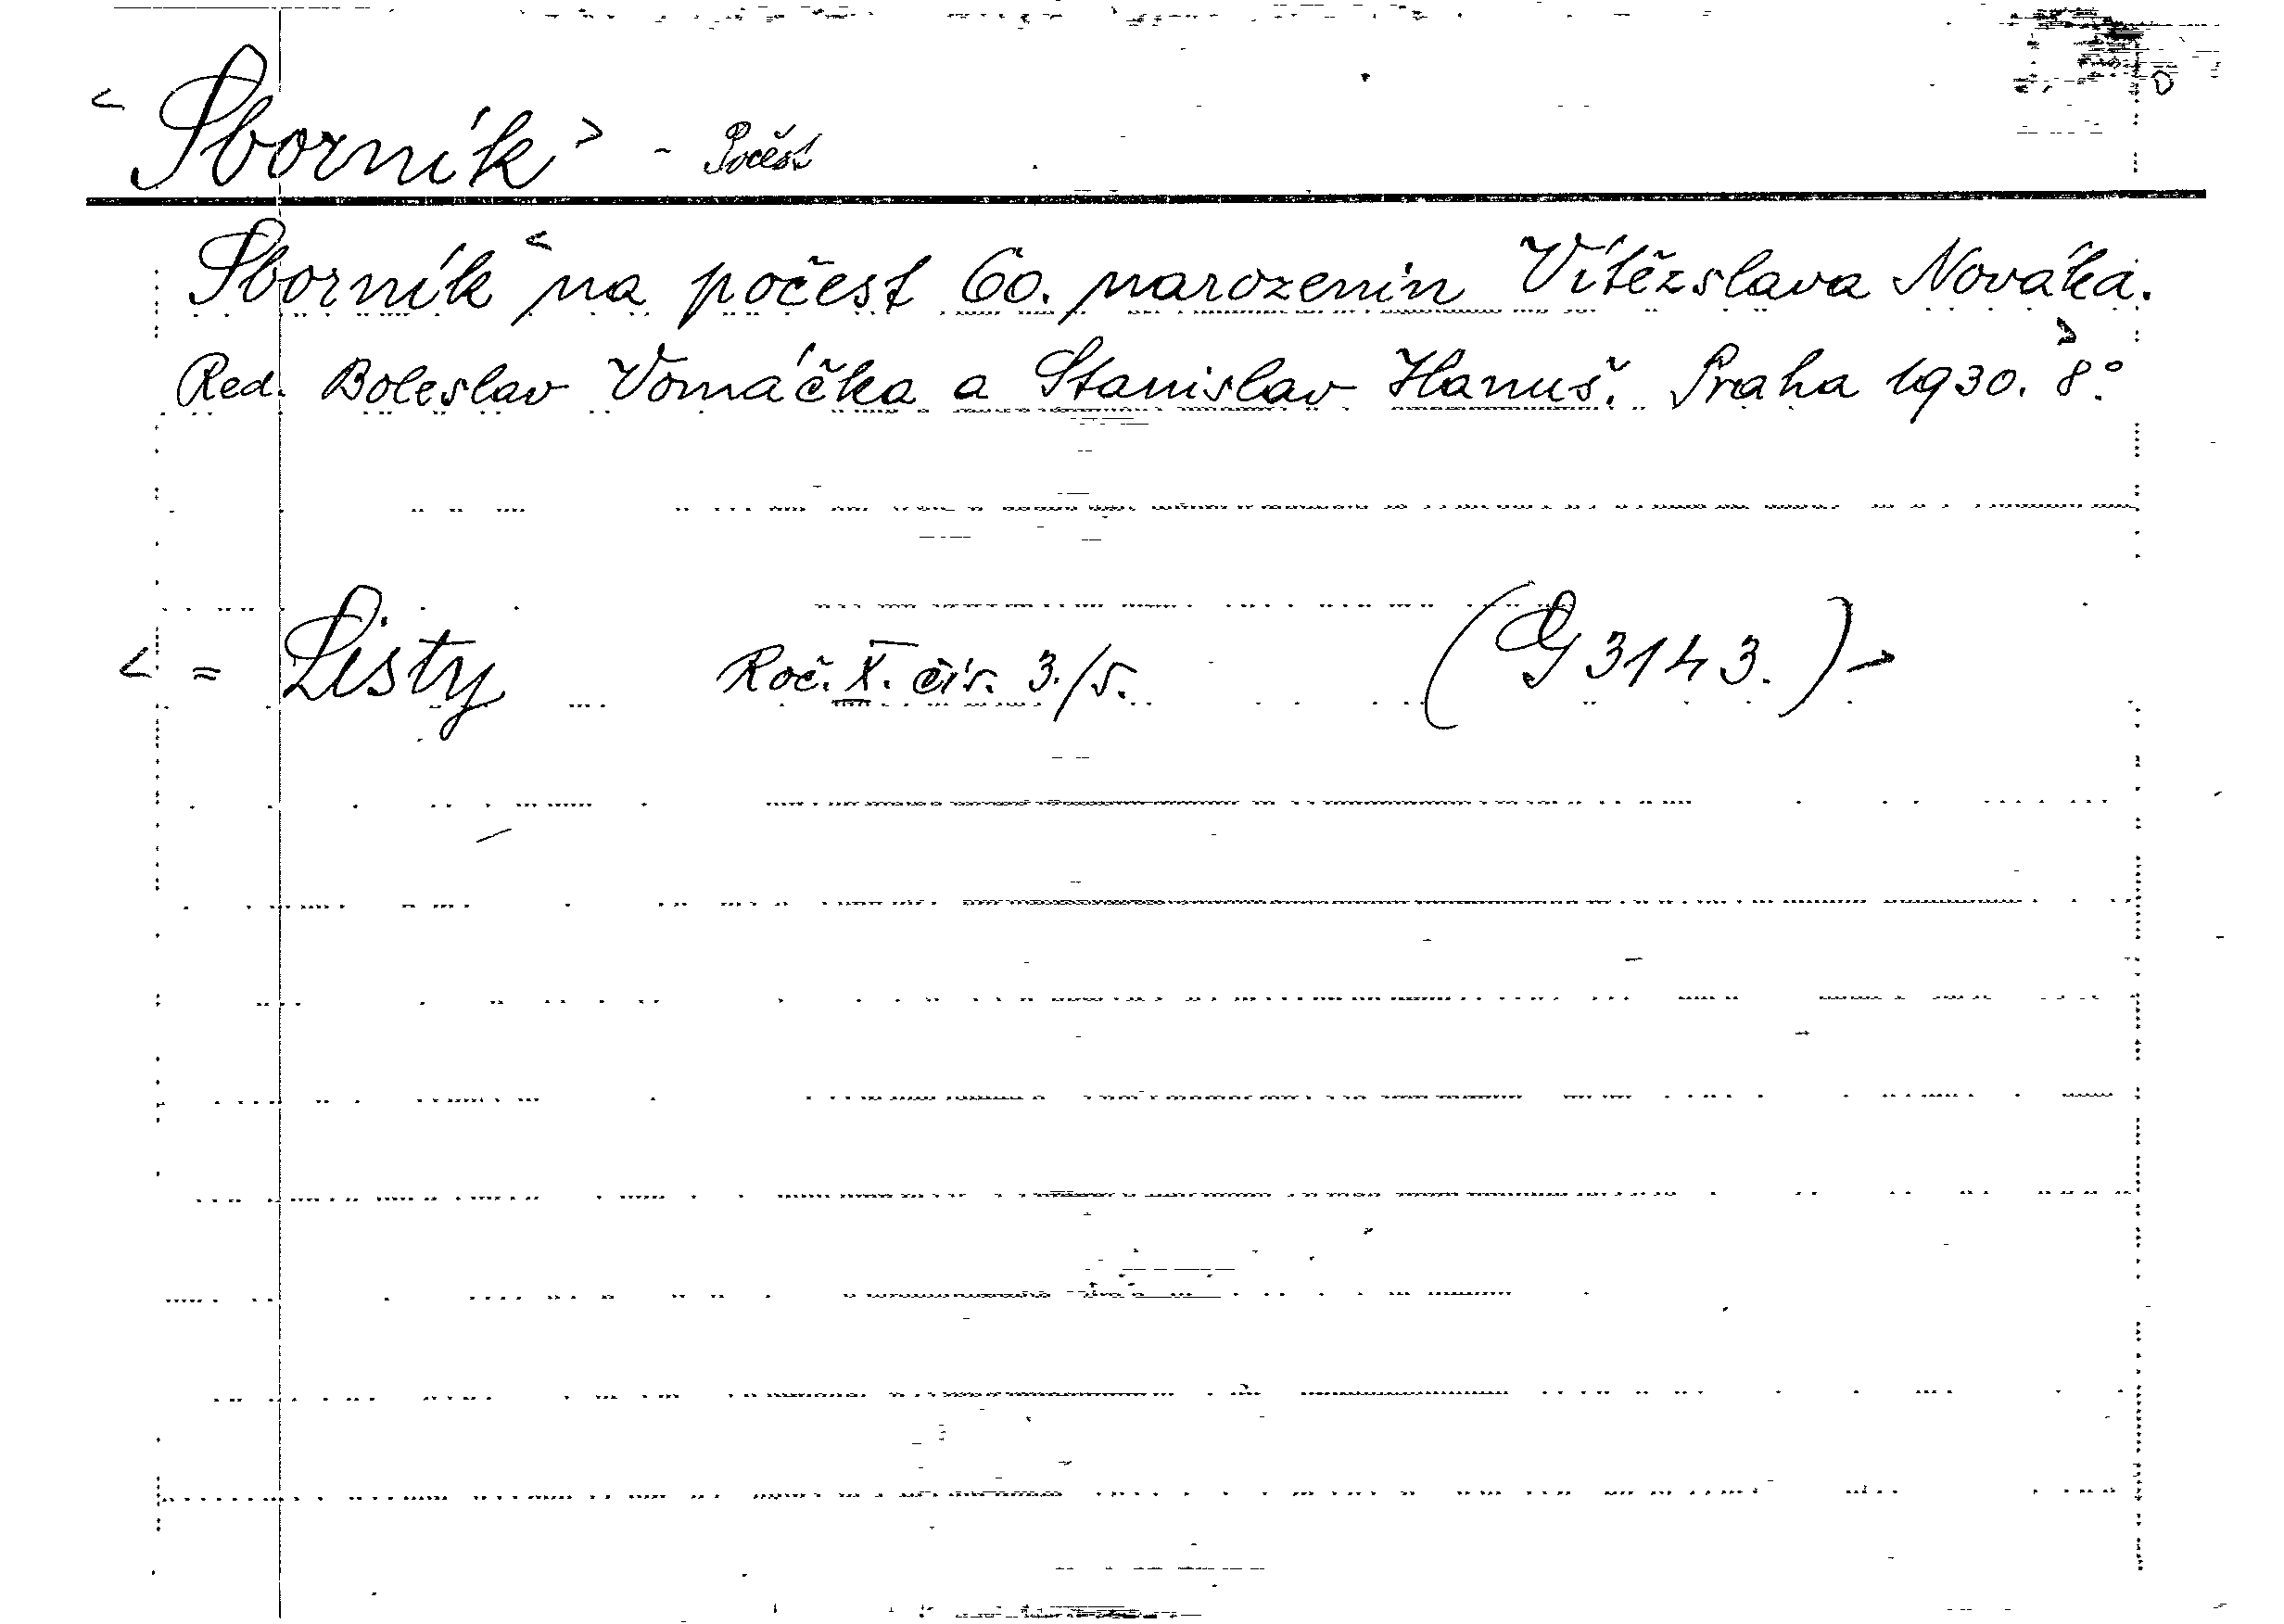 <Sborník> - Počest
Sborník < na počest 60. narozenin Vítězslava Nováka.
Red. Boleslav Vomáčka a Stanislav Hanuš. Praha 1930. 8°. >
< = Listy Roč. X. čís. 3./5. (G 3143.) >